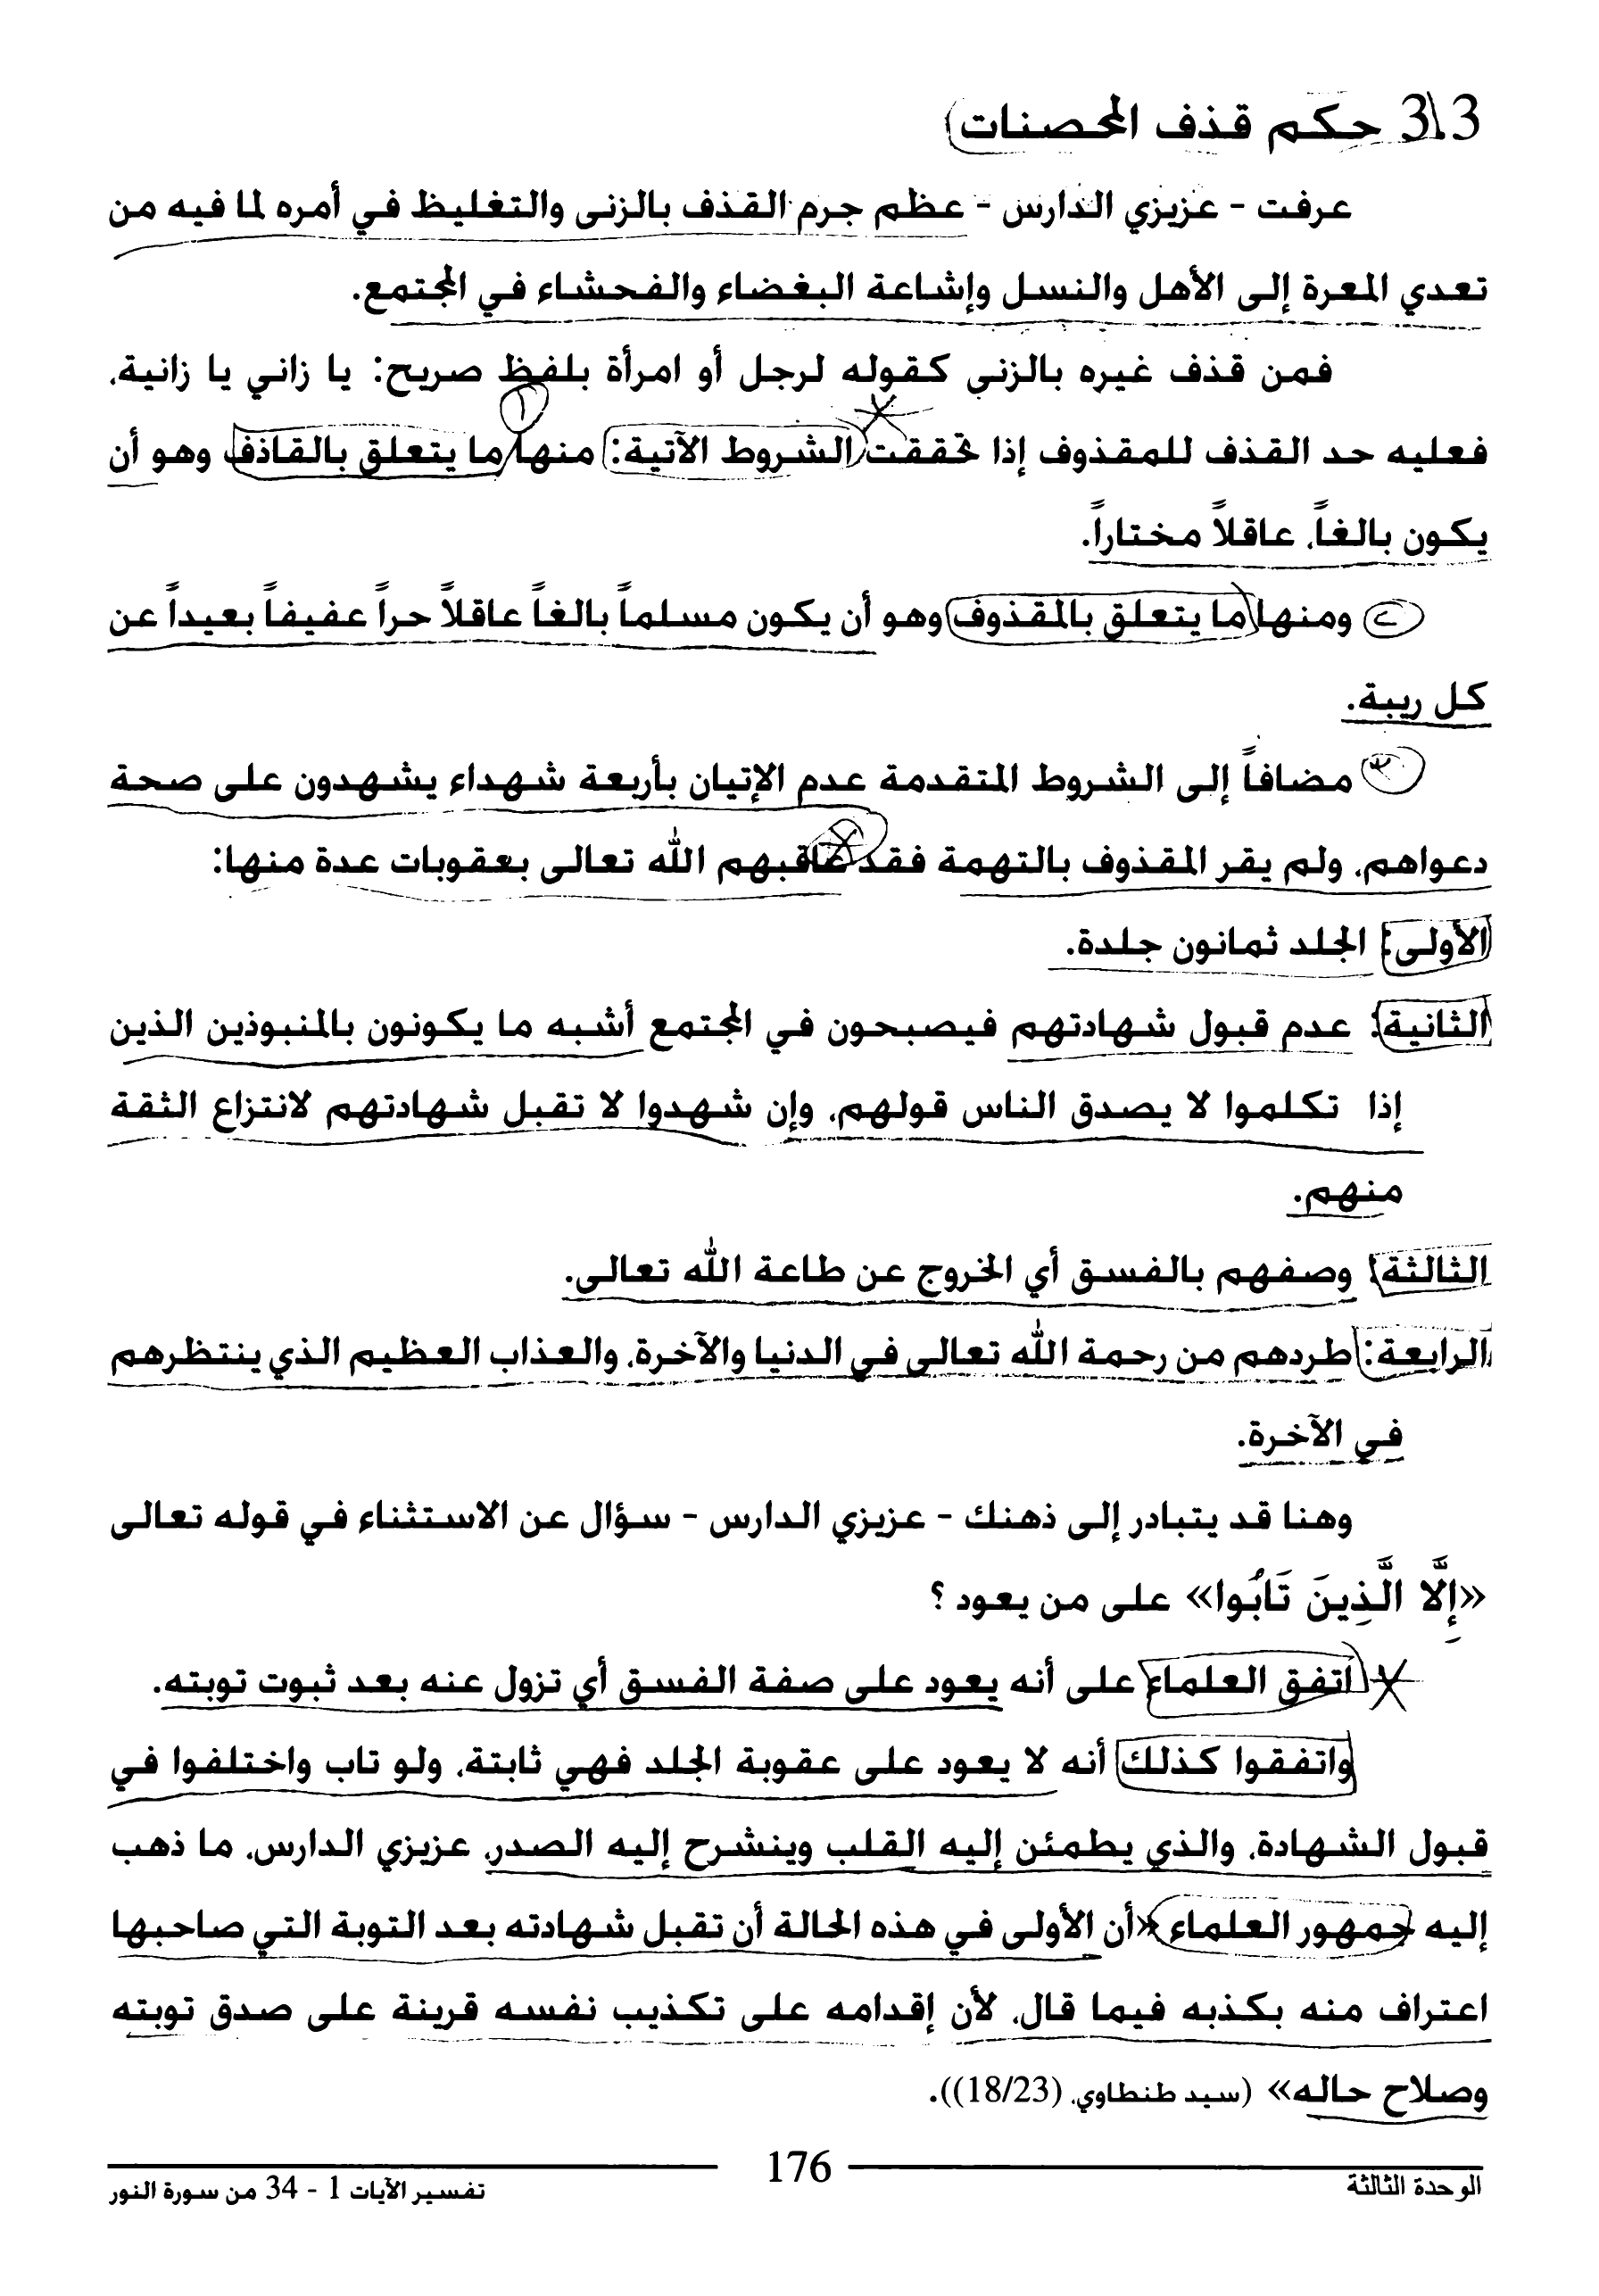 3\3 حكم قذف المحصنات
عرفت - عزيزي الدارس - عظم جرم القذف بالزنى والتغليظ في أمره لما فيه من
تعدي المعرة إلى الأهل والنسل وإشاعة البغضاء والفحشاء في المجتمع.
فمن قذف غيره بالزنى كقوله لرجل أو امرأة بلفظ صريح: يا زاني يا زانية،
فعليه حد القذف للمقذوف إذا تحققت الشروط الآتية: منها ما يتعلق بالقاذف وهو أن
يكون بالغاً، عاقلاً مختاراً.
ومنها ما يتعلق بالمقذوف وهو أن يكون مسلماً بالغاً عاقلاً حراً عفيفاً بعيداً عن
كل ريبة.
مضافاً إلى الشروط المتقدمة عدم الإتيان بأربعة شهداء يشهدون على صحة
دعواهم، ولم يقر المقذوف بالتهمة فقد عاقبهم الله تعالى بعقوبات عدة منها:
الأولى: الجلد ثمانون جلدة.
الثانية: عدم قبول شهادتهم فيصبحون في المجتمع أشبه ما يكونون بالمنبوذين الذين
إذا تكلموا لا يصدق الناس قولهم، وإن شهدوا لا تقبل شهادتهم لانتزاع الثقة
منهم.
الثالثة: وصفهم بالفسق أي الخروج عن طاعة الله تعالى.
الرابعة: طردهم من رحمة الله تعالى في الدنيا والآخرة، والعذاب العظيم الذي ينتظرهم
في الآخرة.
وهنا قد يتبادر إلى ذهنك - عزيزي الدارس - سؤال عن الاستثناء في قوله تعالى
«إِلَّا الَّذِينَ تَابُوا» على من يعود ؟
اتفق العلماء على أنه يعود على صفة الفسق أي تزول عنه بعد ثبوت توبته.
واتفقوا كذلك أنه لا يعود على عقوبة الجلد فهي ثابتة، ولو تاب واختلفوا في
قبول الشهادة، والذي يطمئن إليه القلب وينشرح إليه الصدر، عزيزي الدارس، ما ذهب
إليه جمهور العلماء «أن الأولى في هذه الحالة أن تقبل شهادته بعد التوبة التي صاحبها
اعتراف منه بكذبه فيما قال، لأن إقدامه على تكذيب نفسه قرينة على صدق توبته
وصلاح حاله» (سيد طنطاوي، (18/23)).
176
الوحدة الثالثة
تفسير الآيات 1 - 34 من سورة النور